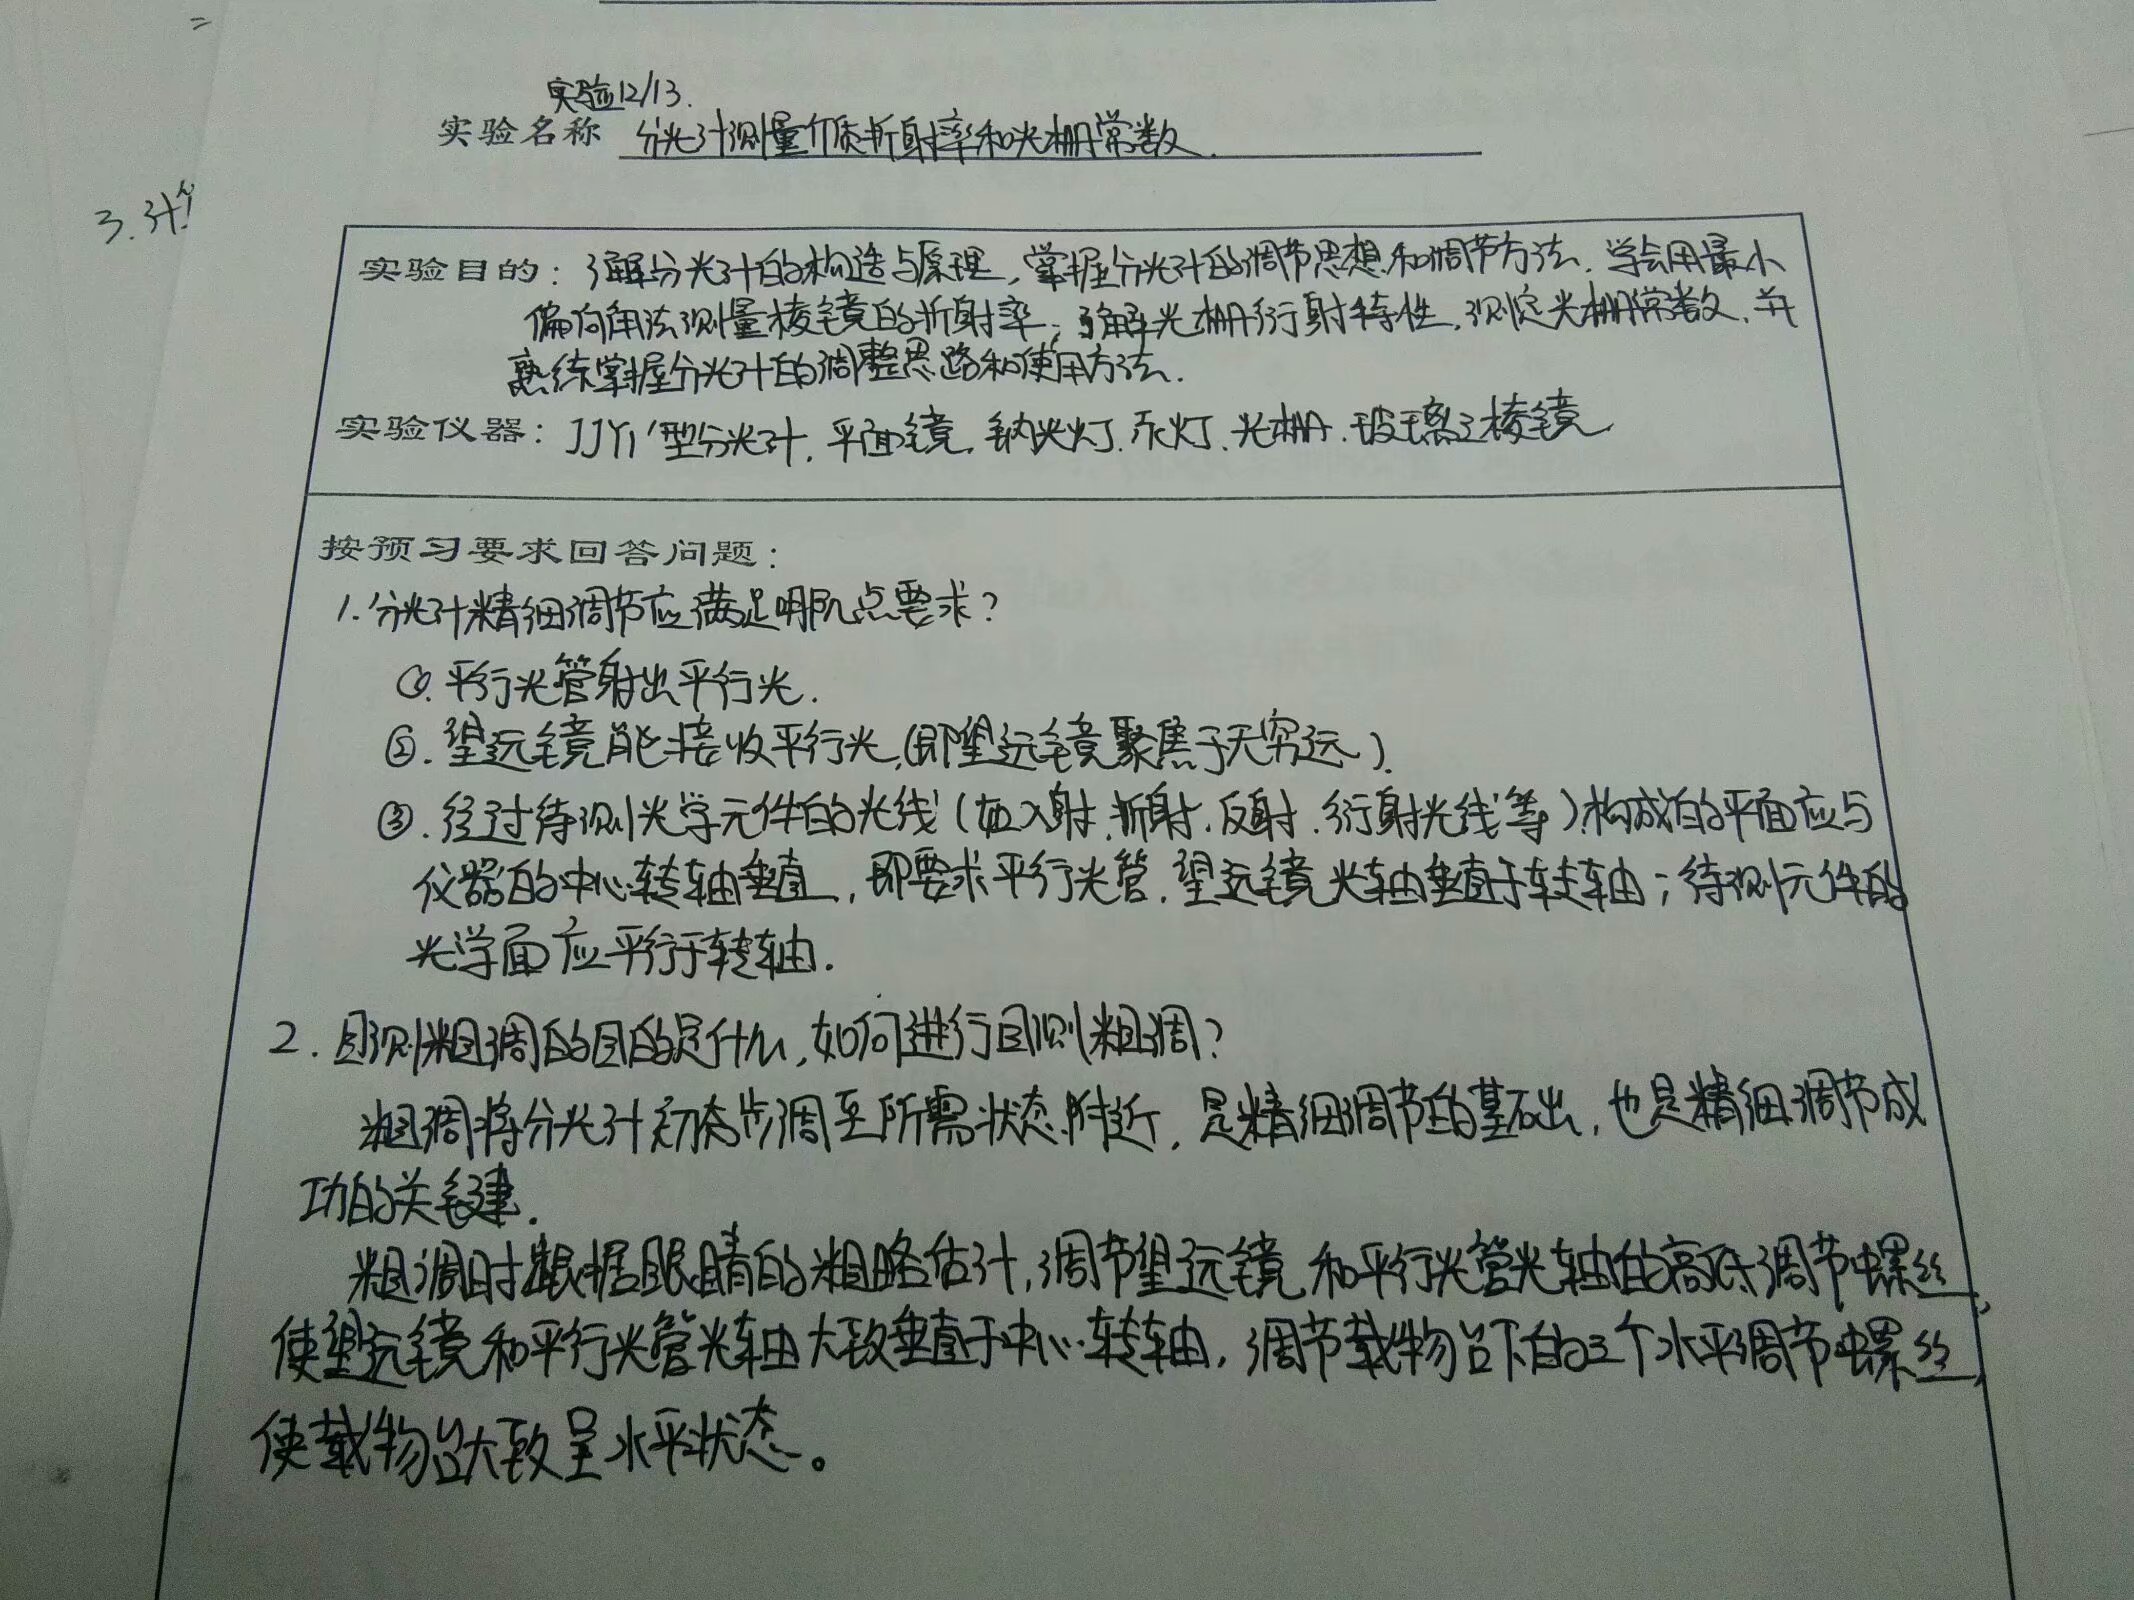 实验12/13.
实验名称 分光计测量介质折射率和光栅常数.
3.计
实验目的：了解分光计的构造与原理，掌握分光计的调节思想和调节方法.学会用最小
偏向角法测量棱镜的折射率；了解光栅衍射特性，测定光栅常数，并
熟练掌握分光计的调整思路和使用方法.
实验仪器：JJY1'型分光计，平面镜，钠光灯.汞灯.光栅.玻璃三棱镜
按预习要求回答问题：
1.分光计精细调节应满足哪几点要求？
①.平行光管射出平行光.
②.望远镜能接收平行光,(即望远镜聚焦于无穷远).
③.经过待测光学元件的光线(如入射.折射.反射.衍射光线等)构成的平面应与
仪器的中心转轴垂直，即要求平行光管.望远镜光轴垂直于转轴；待测元件的
光学面应平行于转轴.
2.目测粗调的目的是什么,如何进行目测粗调？
粗调将分光计初步调至所需状态附近，是精细调节的基础，也是精细调节成
功的关键.
粗调时根据眼睛的粗略估计,调节望远镜和平行光管光轴的高低调节螺丝,
使望远镜和平行光管光轴大致垂直于中心转轴，调节载物台下的三个水平调节螺丝,
使载物台大致呈水平状态。